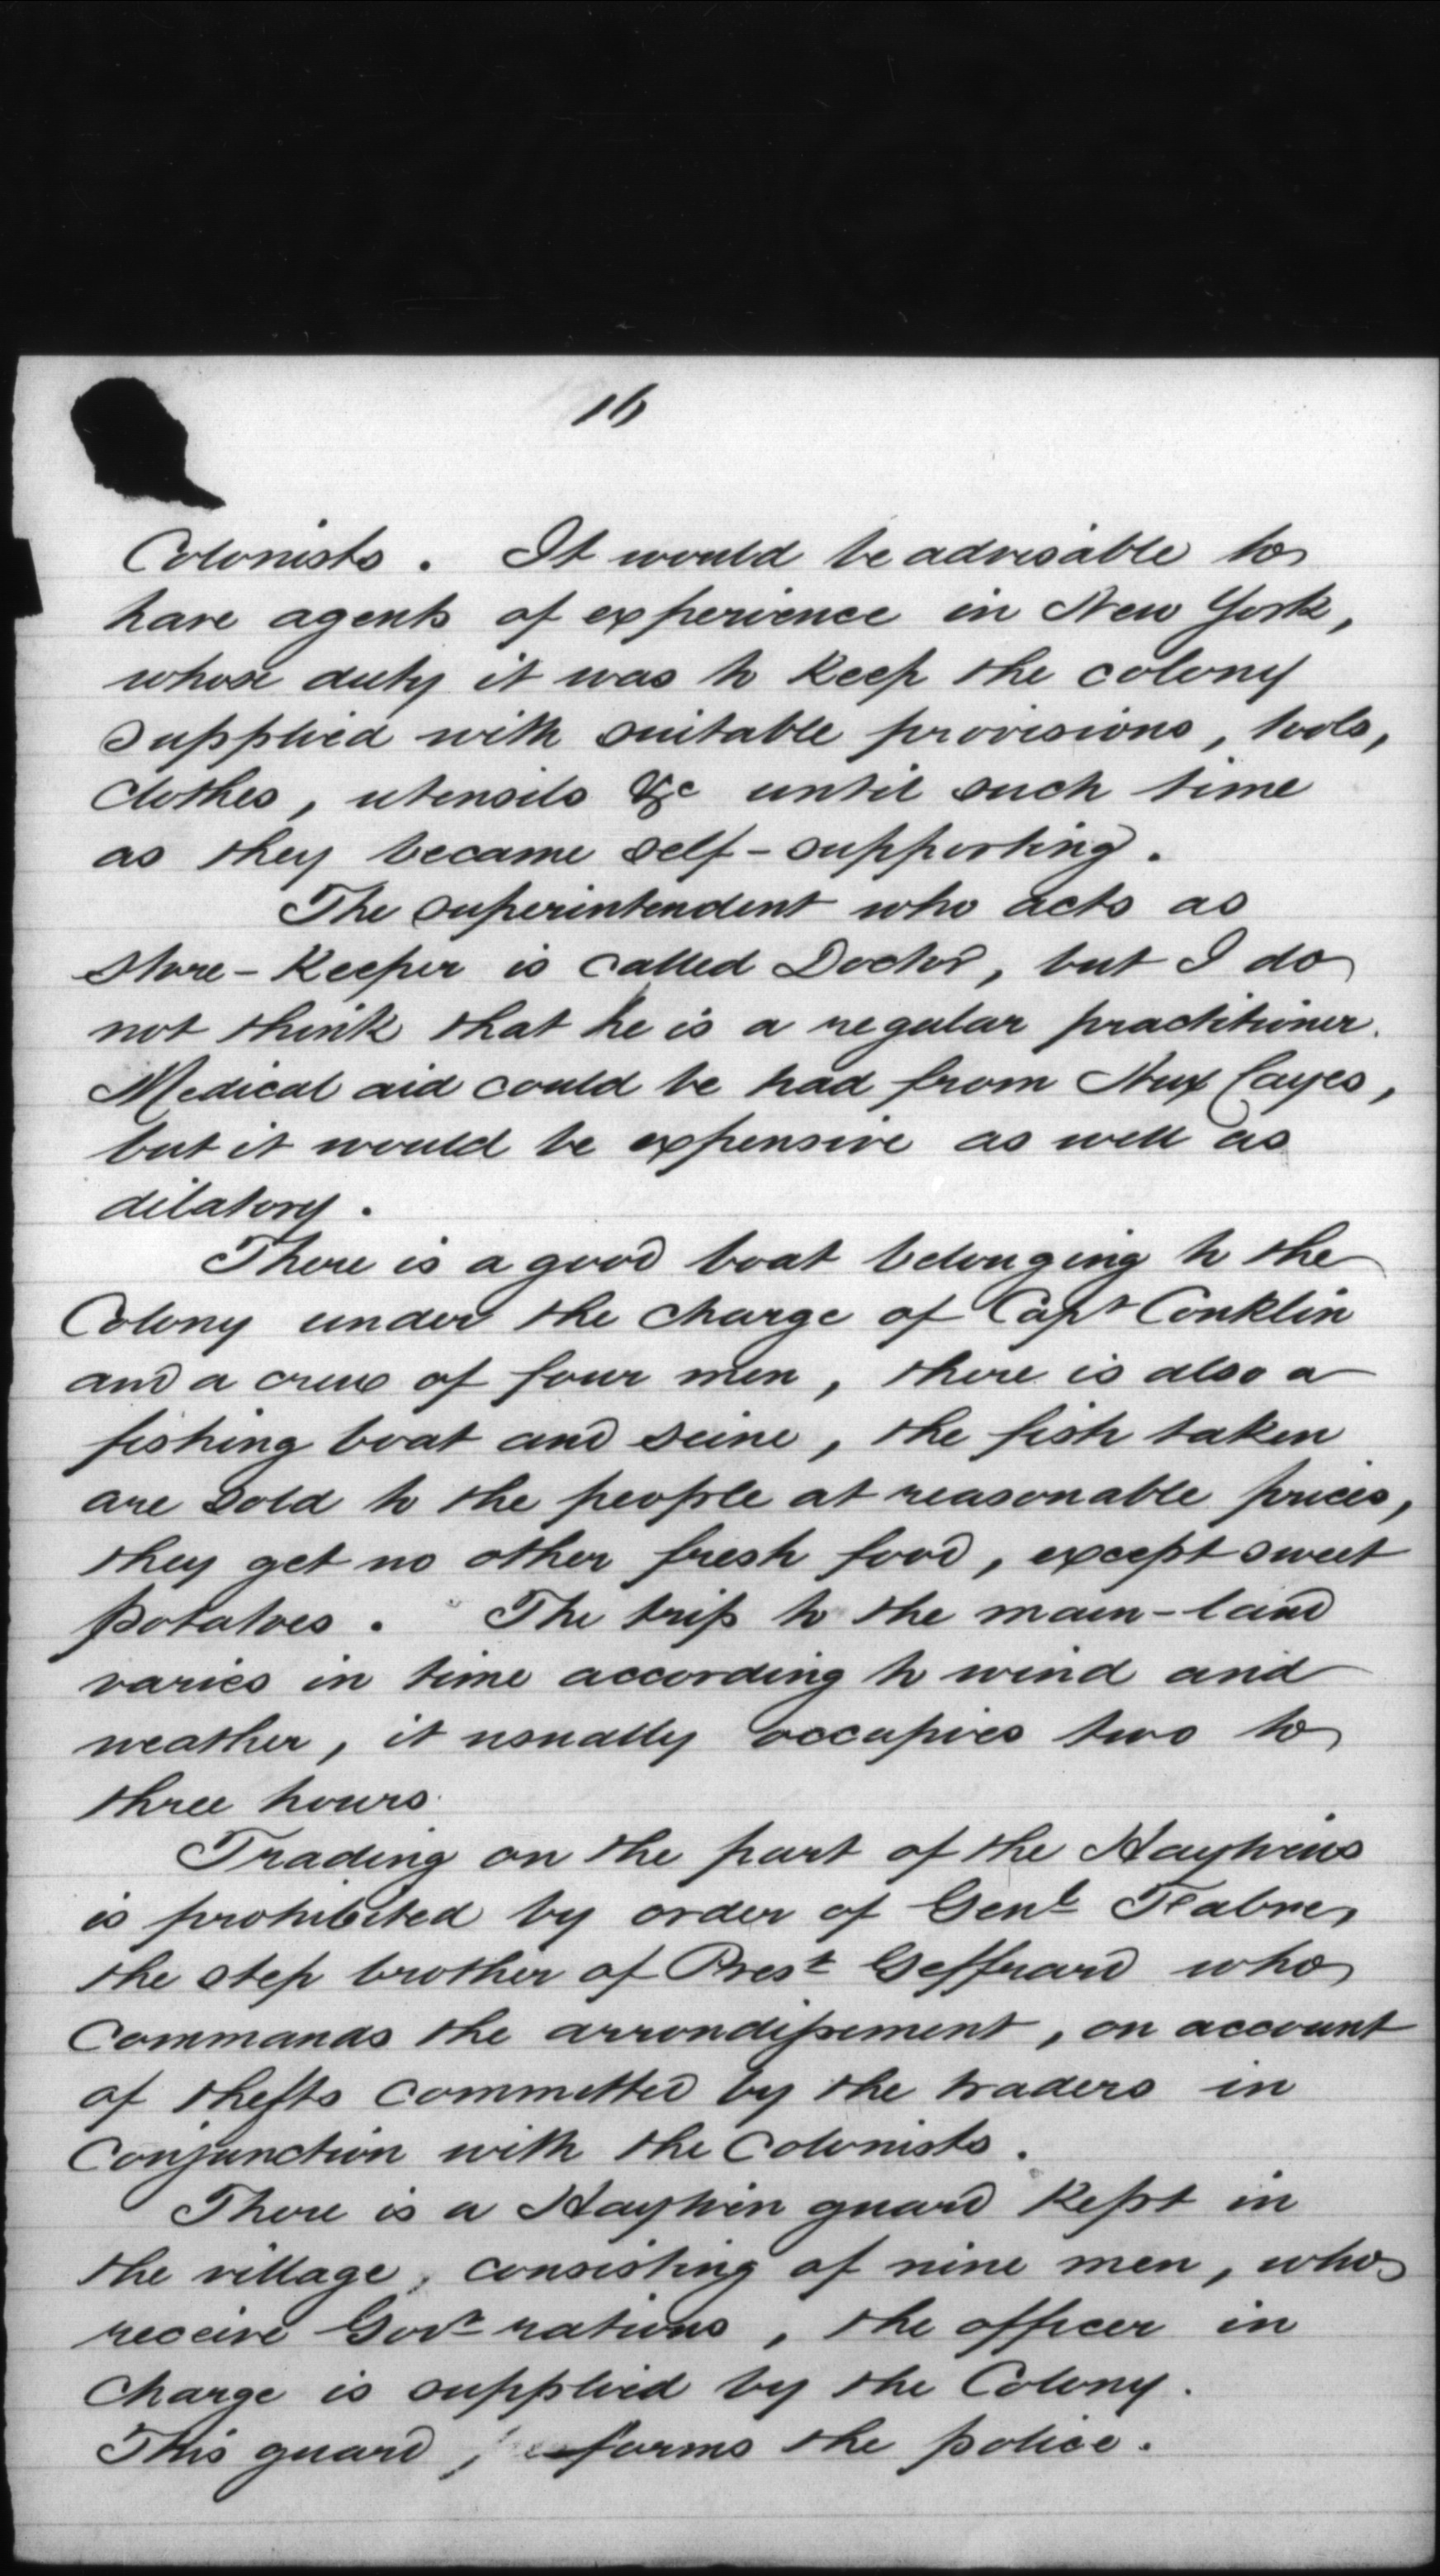 16
Colonists. It would be advisable to
have agents of experience in New York,
whose duty it was to keep the colony
supplied with suitable provisions, tools,
clothes, utensils &c until such time
as they became self-supporting.
The superintendent who acts as
store-keeper is called Doctor, but I do
not think that he is a regular practitioner.
Medical aid could be had from Aux Cayes,
but it would be expensive as well as
dilatory.
There is a good boat belonging to the
Colony under the charge of Capt Conklin
and a crew of four men, there is also a
fishing boat and seine, the fish taken
are sold to the people at reasonable prices,
they get no other fresh food, except sweet
potatoes. The trip to the main-land
varies in time according to wind and
weather, it usually occupies two to
three hours.
Trading on the part of the Haytiens
is prohibited by order of Genl
the step brother of Prest Geffrard who
Commands the arrondissement, on account
of thefts committed by the traders in
Conjunction with the Colonists.
There is a Haytien guard kept in
the village, consisting of nine men, who
receive Govt rations, the officer in
Charge is supplied by the Colony.
This guard, forms the police.